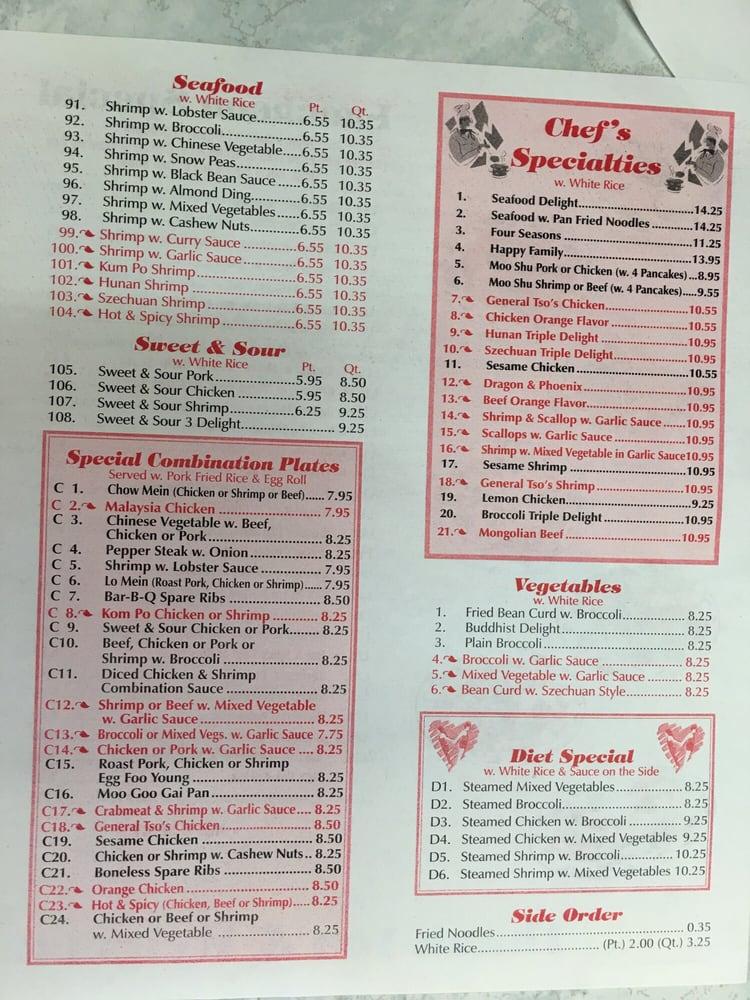 Seafood
w. White Rice
Pt. Qt.
91. Shrimp w. Lobster Sauce............6.55 10.35
92. Shrimp w. Broccoli......................6.55 10.35
93. Shrimp w. Chinese Vegetable.....6.55 10.35
94. Shrimp w. Snow Peas..................6.55 10.35
95. Shrimp w. Black Bean Sauce......6.55 10.35
96. Shrimp w. Almond Ding..............6.55 10.35
97. Shrimp w. Mixed Vegetables......6.55 10.35
98. Shrimp w. Cashew Nuts..............6.55 10.35
99. Shrimp w. Curry Sauce ..............6.55 10.35
100. Shrimp w. Garlic Sauce..............6.55 10.35
101. Kum Po Shrimp..........................6.55 10.35
102. Hunan Shrimp ...........................6.55 10.35
103. Szechuan Shrimp .......................6.55 10.35
104. Hot & Spicy Shrimp ....................6.55 10.35
Sweet & Sour
w. White Rice
Pt. Qt.
105. Sweet & Sour Pork.......................5.95 8.50
106. Sweet & Sour Chicken .................5.95 8.50
107. Sweet & Sour Shrimp...................6.25 9.25
108. Sweet & Sour 3 Delight.......................... 9.25
Special Combination Plates
Served w. Pork Fried Rice & Egg Roll
C 1. Chow Mein (Chicken or Shrimp or Beef)...... 7.95
C 2. Malaysia Chicken .............................. 7.95
C 3. Chinese Vegetable w. Beef,
Chicken or Pork................................ 8.25
C 4. Pepper Steak w. Onion...................... 8.25
C 5. Shrimp w. Lobster Sauce .................. 7.95
C 6. Lo Mein (Roast Pork, Chicken or Shrimp)..... 7.95
C 7. Bar-B-Q Spare Ribs .......................... 8.50
C 8. Kom Po Chicken or Shrimp .............. 8.25
C 9. Sweet & Sour Chicken or Pork........ 8.25
C10. Beef, Chicken or Pork or
Shrimp w. Broccoli .......................... 8.25
C11. Diced Chicken & Shrimp
Combination Sauce .......................... 8.25
C12. Shrimp or Beef w. Mixed Vegetable
w. Garlic Sauce ................................ 8.25
C13. Broccoli or Mixed Vegs. w. Garlic Sauce 7.75
C14. Chicken or Pork w. Garlic Sauce .... 8.25
C15. Roast Pork, Chicken or Shrimp
Egg Foo Young ................................ 8.25
C16. Moo Goo Gai Pan............................ 8.25
C17. Crabmeat & Shrimp w. Garlic Sauce.... 8.25
C18. General Tso's Chicken...................... 8.50
C19. Sesame Chicken .............................. 8.50
C20. Chicken or Shrimp w. Cashew Nuts.. 8.25
C21. Boneless Spare Ribs ........................ 8.50
C22. Orange Chicken .............................. 8.50
C23. Hot & Spicy (Chicken, Beef or Shrimp)..... 8.25
C24. Chicken or Beef or Shrimp
w. Mixed Vegetable ........................ 8.25
Chef's
Specialties
w. White Rice
1. Seafood Delight..............................14.25
2. Seafood w. Pan Fried Noodles ...........14.25
3. Four Seasons ................................11.25
4. Happy Family................................13.95
5. Moo Shu Pork or Chicken (w. 4 Pancakes)...8.95
6. Moo Shu Shrimp or Beef (w. 4 Pancakes)....9.55
7. General Tso's Chicken.....................10.55
8. Chicken Orange Flavor ....................10.55
9. Hunan Triple Delight ......................10.95
10. Szechuan Triple Delight...................10.95
11. Sesame Chicken ...........................10.55
12. Dragon & Phoenix..........................10.95
13. Beef Orange Flavor.........................10.95
14. Shrimp & Scallop w. Garlic Sauce ......10.95
15. Scallops w. Garlic Sauce ..................10.95
16. Shrimp w. Mixed Vegetable in Garlic Sauce10.95
17. Sesame Shrimp .............................10.95
18. General Tso's Shrimp.......................10.95
19. Lemon Chicken..............................9.25
20. Broccoli Triple Delight .....................10.95
21. Mongolian Beef .............................10.95
Vegetables
w. White Rice
1. Fried Bean Curd w. Broccoli................ 8.25
2. Buddhist Delight.............................. 8.25
3. Plain Broccoli.................................. 8.25
4. Broccoli w. Garlic Sauce .................... 8.25
5. Mixed Vegetable w. Garlic Sauce ........ 8.25
6. Bean Curd w. Szechuan Style.............. 8.25
Diet Special
w. White Rice & Sauce on the Side
D1. Steamed Mixed Vegetables.................. 8.25
D2. Steamed Broccoli............................ 8.25
D3. Steamed Chicken w. Broccoli .............. 9.25
D4. Steamed Chicken w. Mixed Vegetables 9.25
D5. Steamed Shrimp w. Broccoli.............. 10.25
D6. Steamed Shrimp w. Mixed Vegetables 10.25
Side Order
Fried Noodles........................................ 0.35
White Rice.......................... (Pt.) 2.00 (Qt.) 3.25